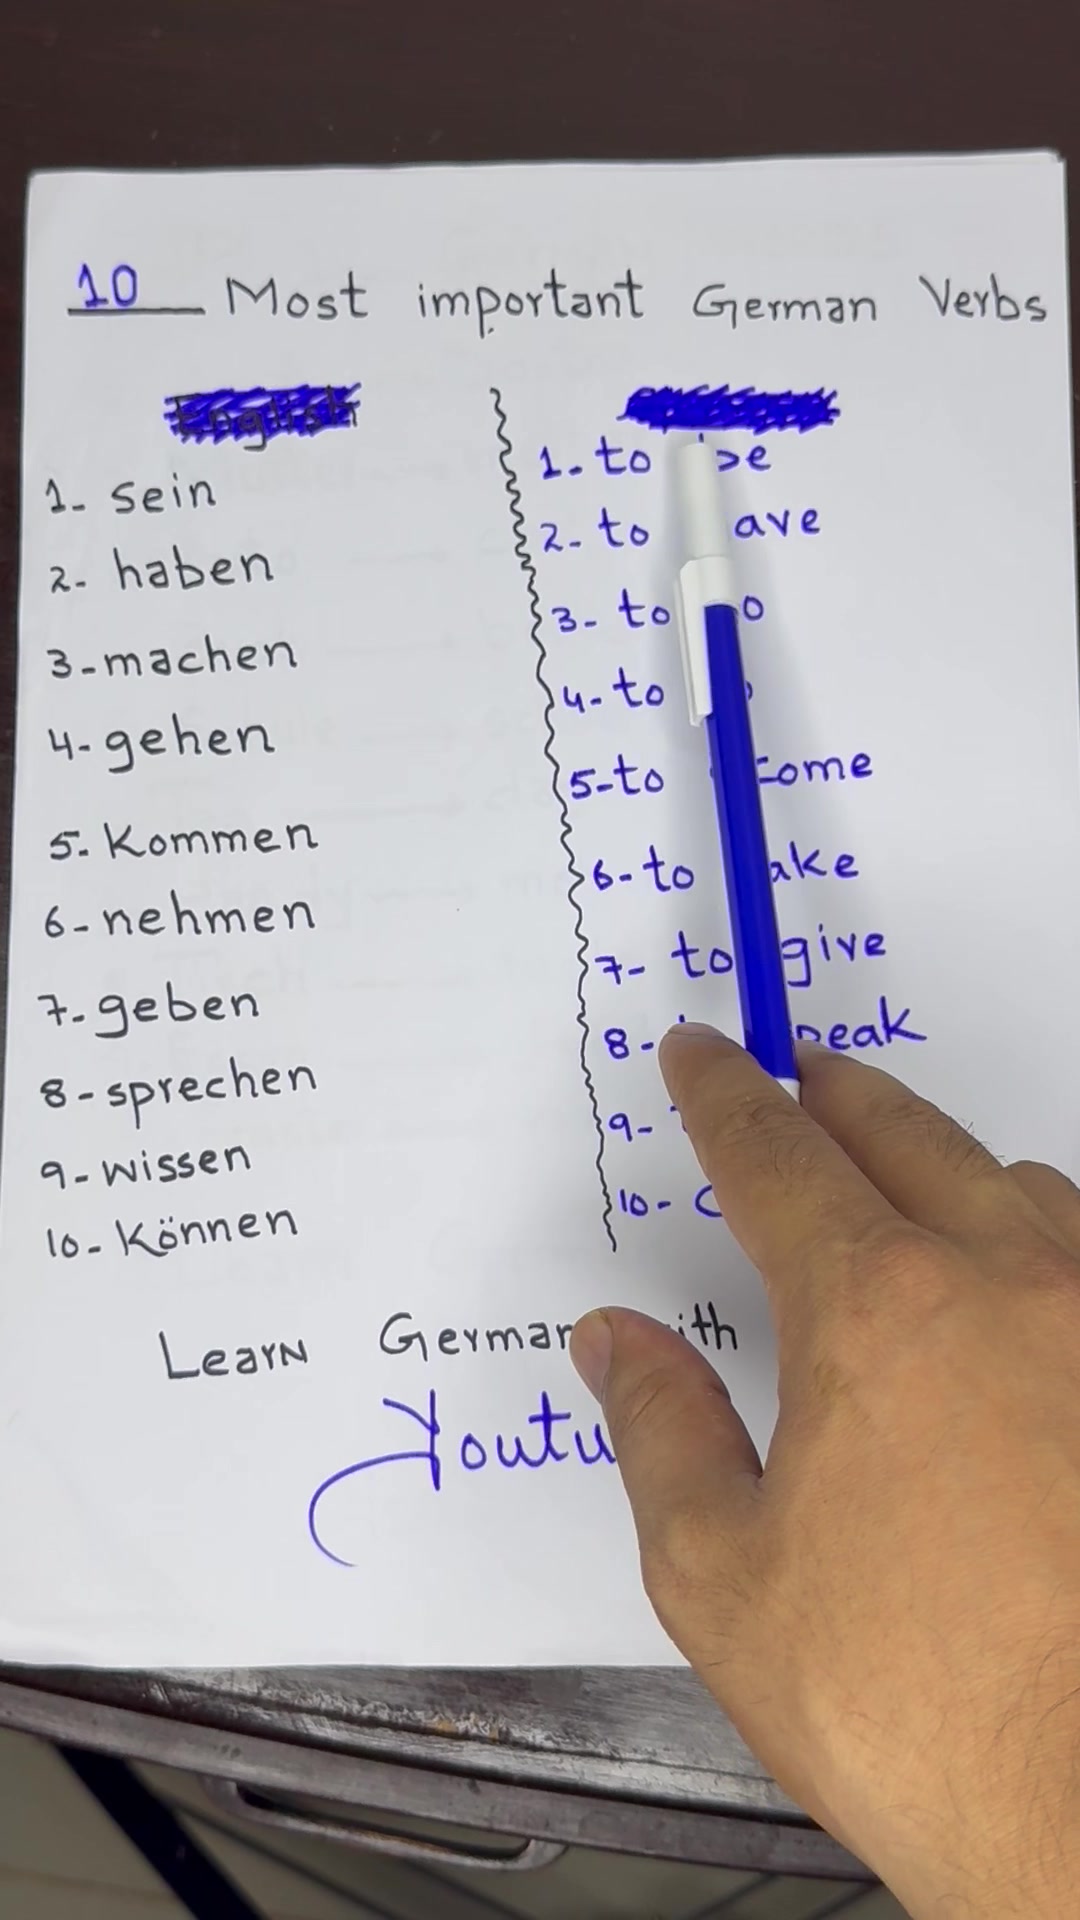 10 Most important German Verbs
English
1- sein
2- haben
3- machen
4- gehen
5- Kommen
6- nehmen
7- geben
8- sprechen
9- wissen
10- Können
1- to be
2- to
3- to
4- to
5- to come
6- to
7- to give
8-
9-
10-
Learn German